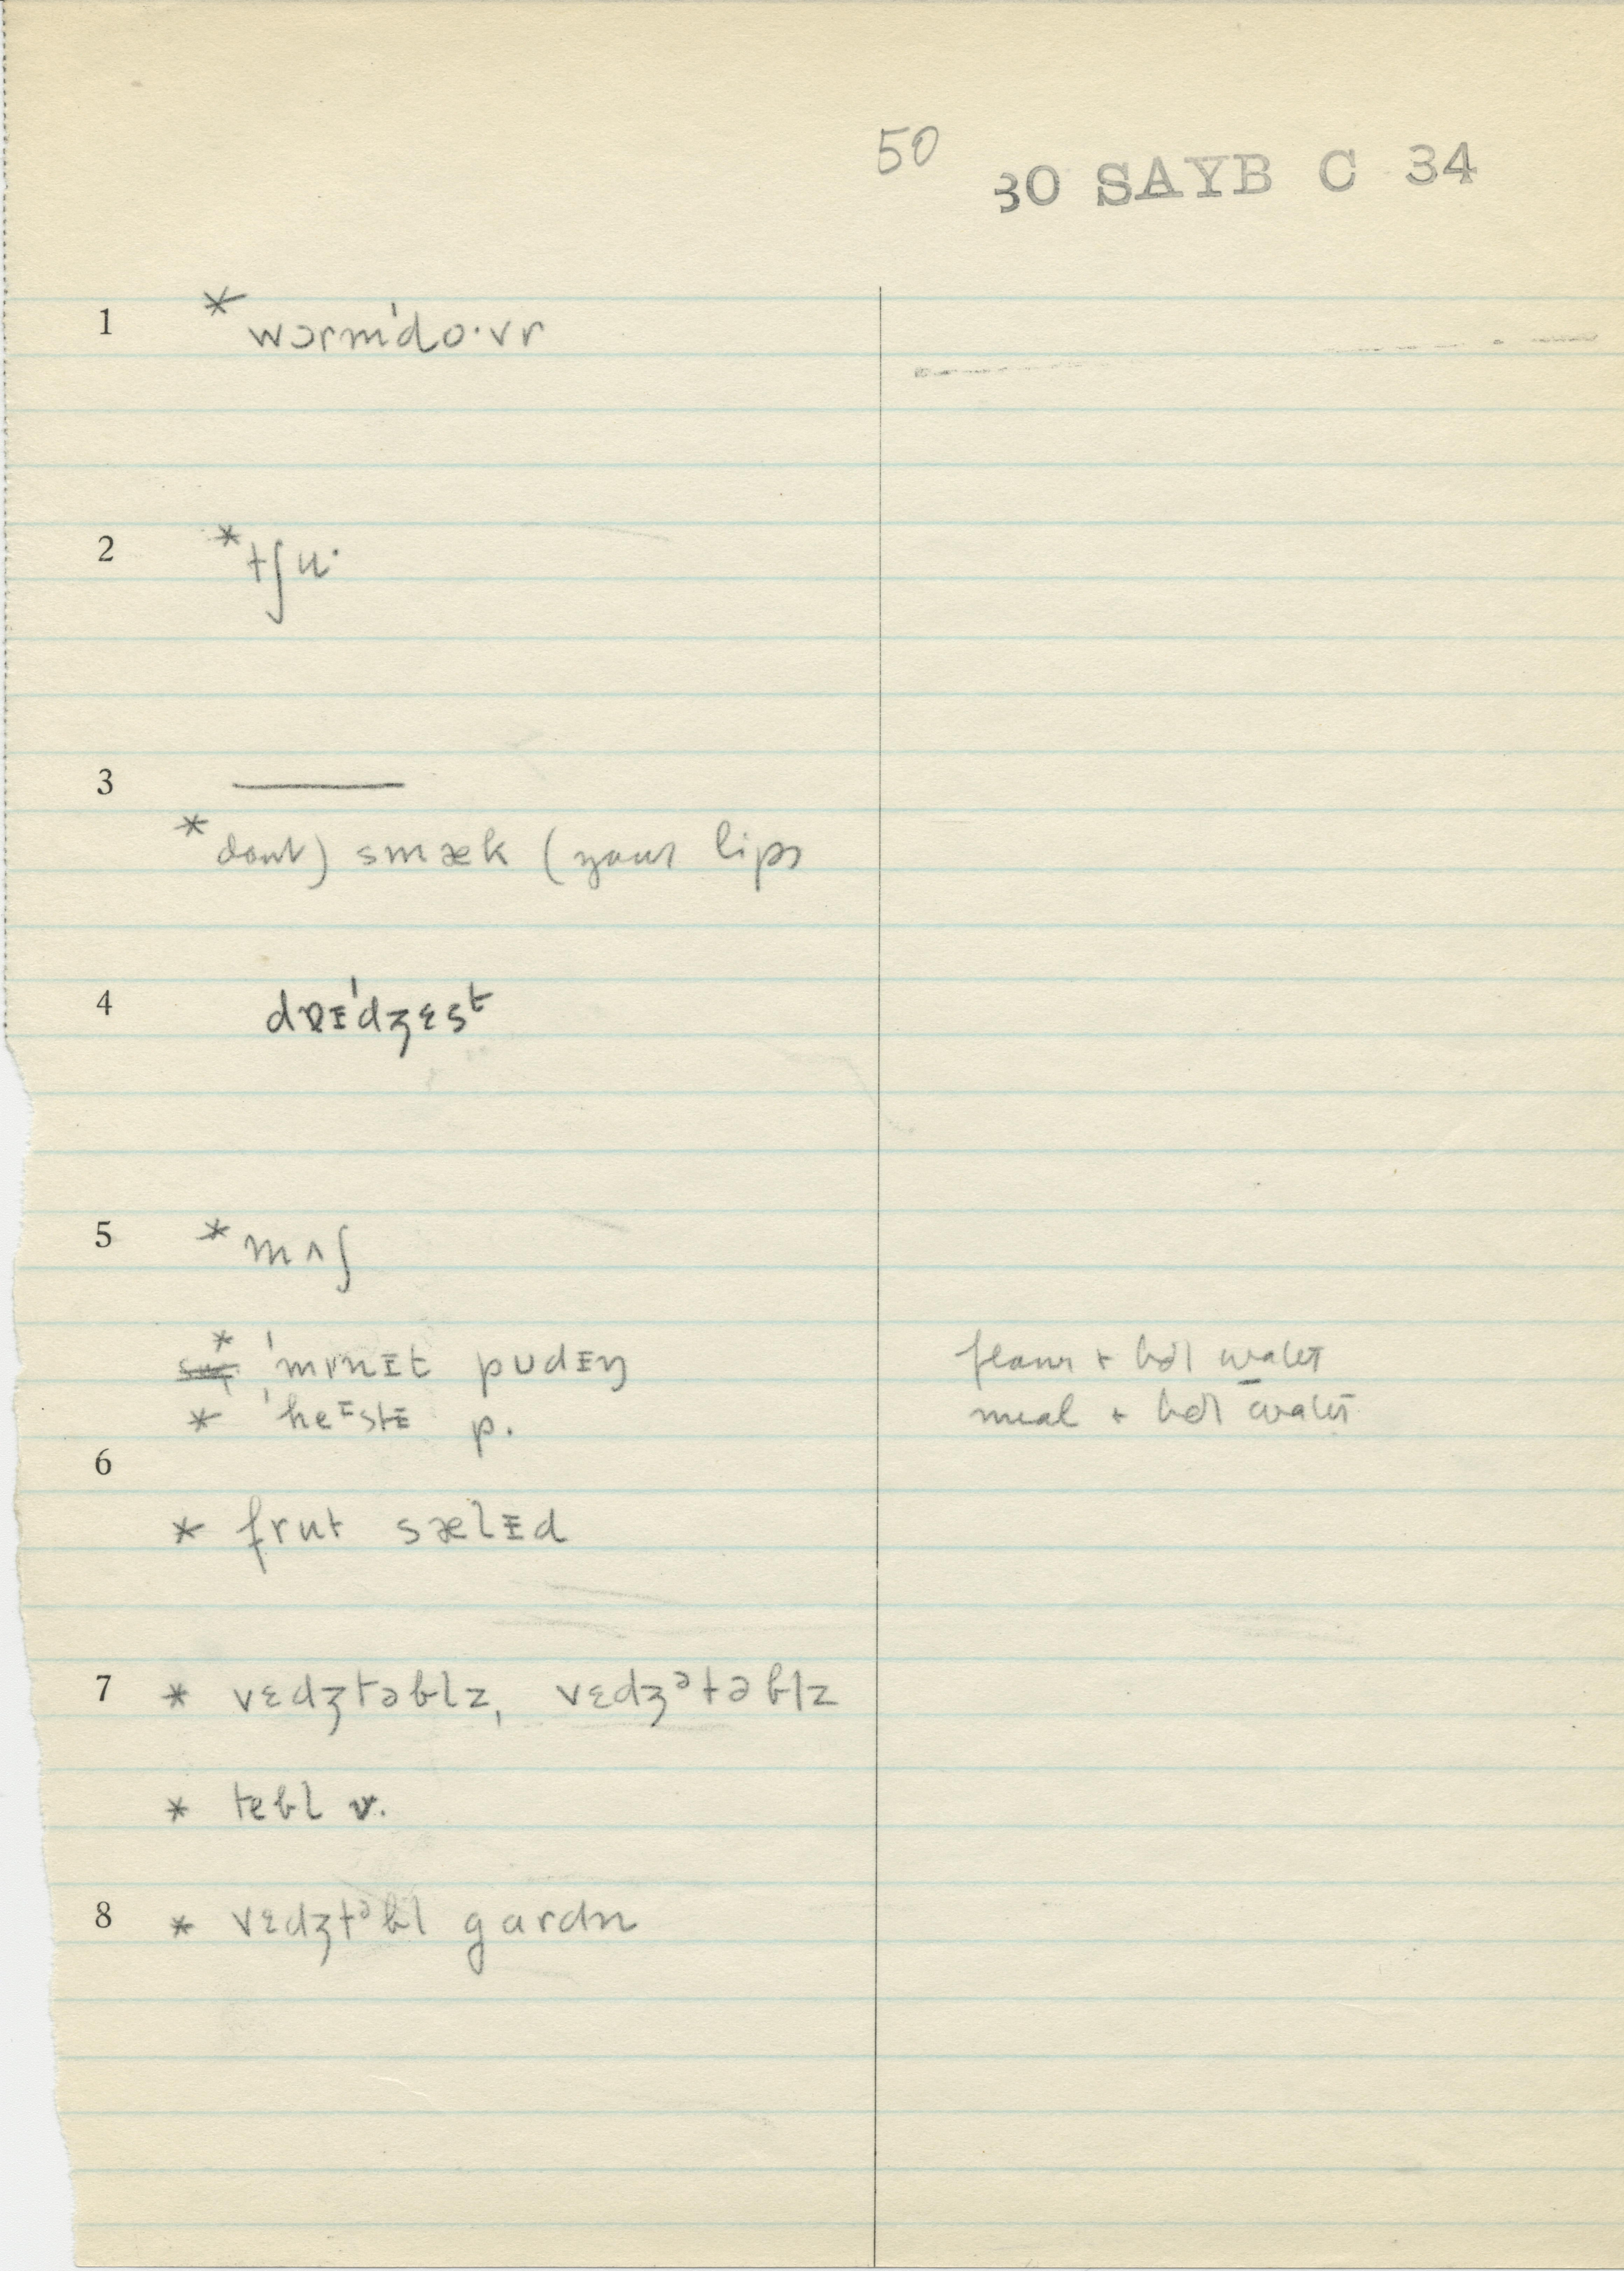 50
30 SAYB C 34
1 * wɔrm'do·vr
2 * tʃu·
3 ———
* dont) smæk (your lips
4 dɒɪ'dʒɛst
5 * mʌʃ
* 'mɪnɪt pudɪŋ flour + hot water
* 'heɪstɪ p. meal + hot water
6
* frut sælɪd
7 * vɛdʒtəblz, vɛdʒᵊtəblz
* tebl v.
8 * vɛdʒtᵊbl gardn